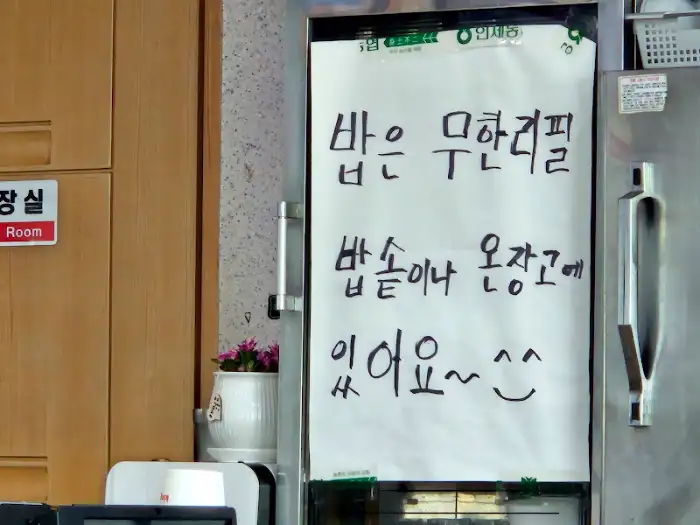 인제농
밥은 무한리필
밥솥이나 온장고에
있어요~ ^^
장실
Room